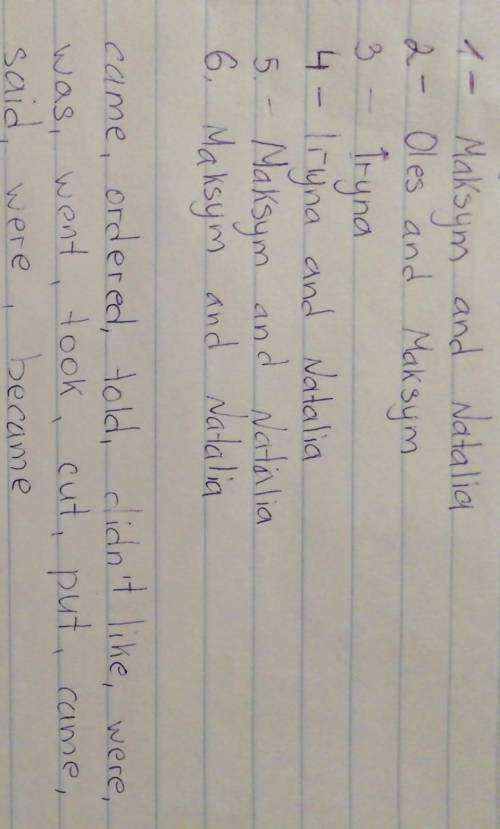 1 - Maksym and Natalia
2 - Oles and Maksym
3 - Iryna
4 - Iryna and Natalia
5. - Maksym and Natalia
6. Maksym and Natalia
came, ordered, told, didn't like, were,
was, went, took, cut, put, came,
said, were, became